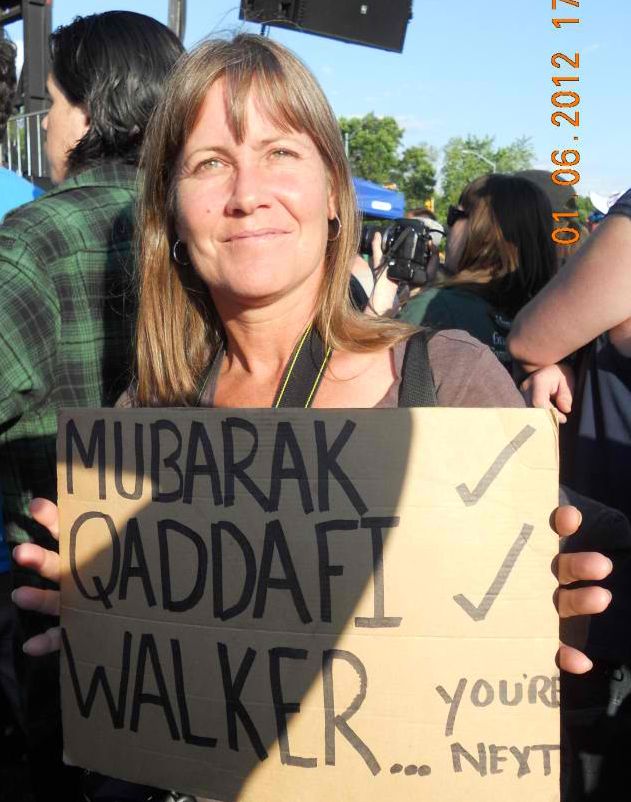 MUBARAK ✓
QADDAFI ✓
WALKER... YOU'RE
NEXT
01.06.2012 17